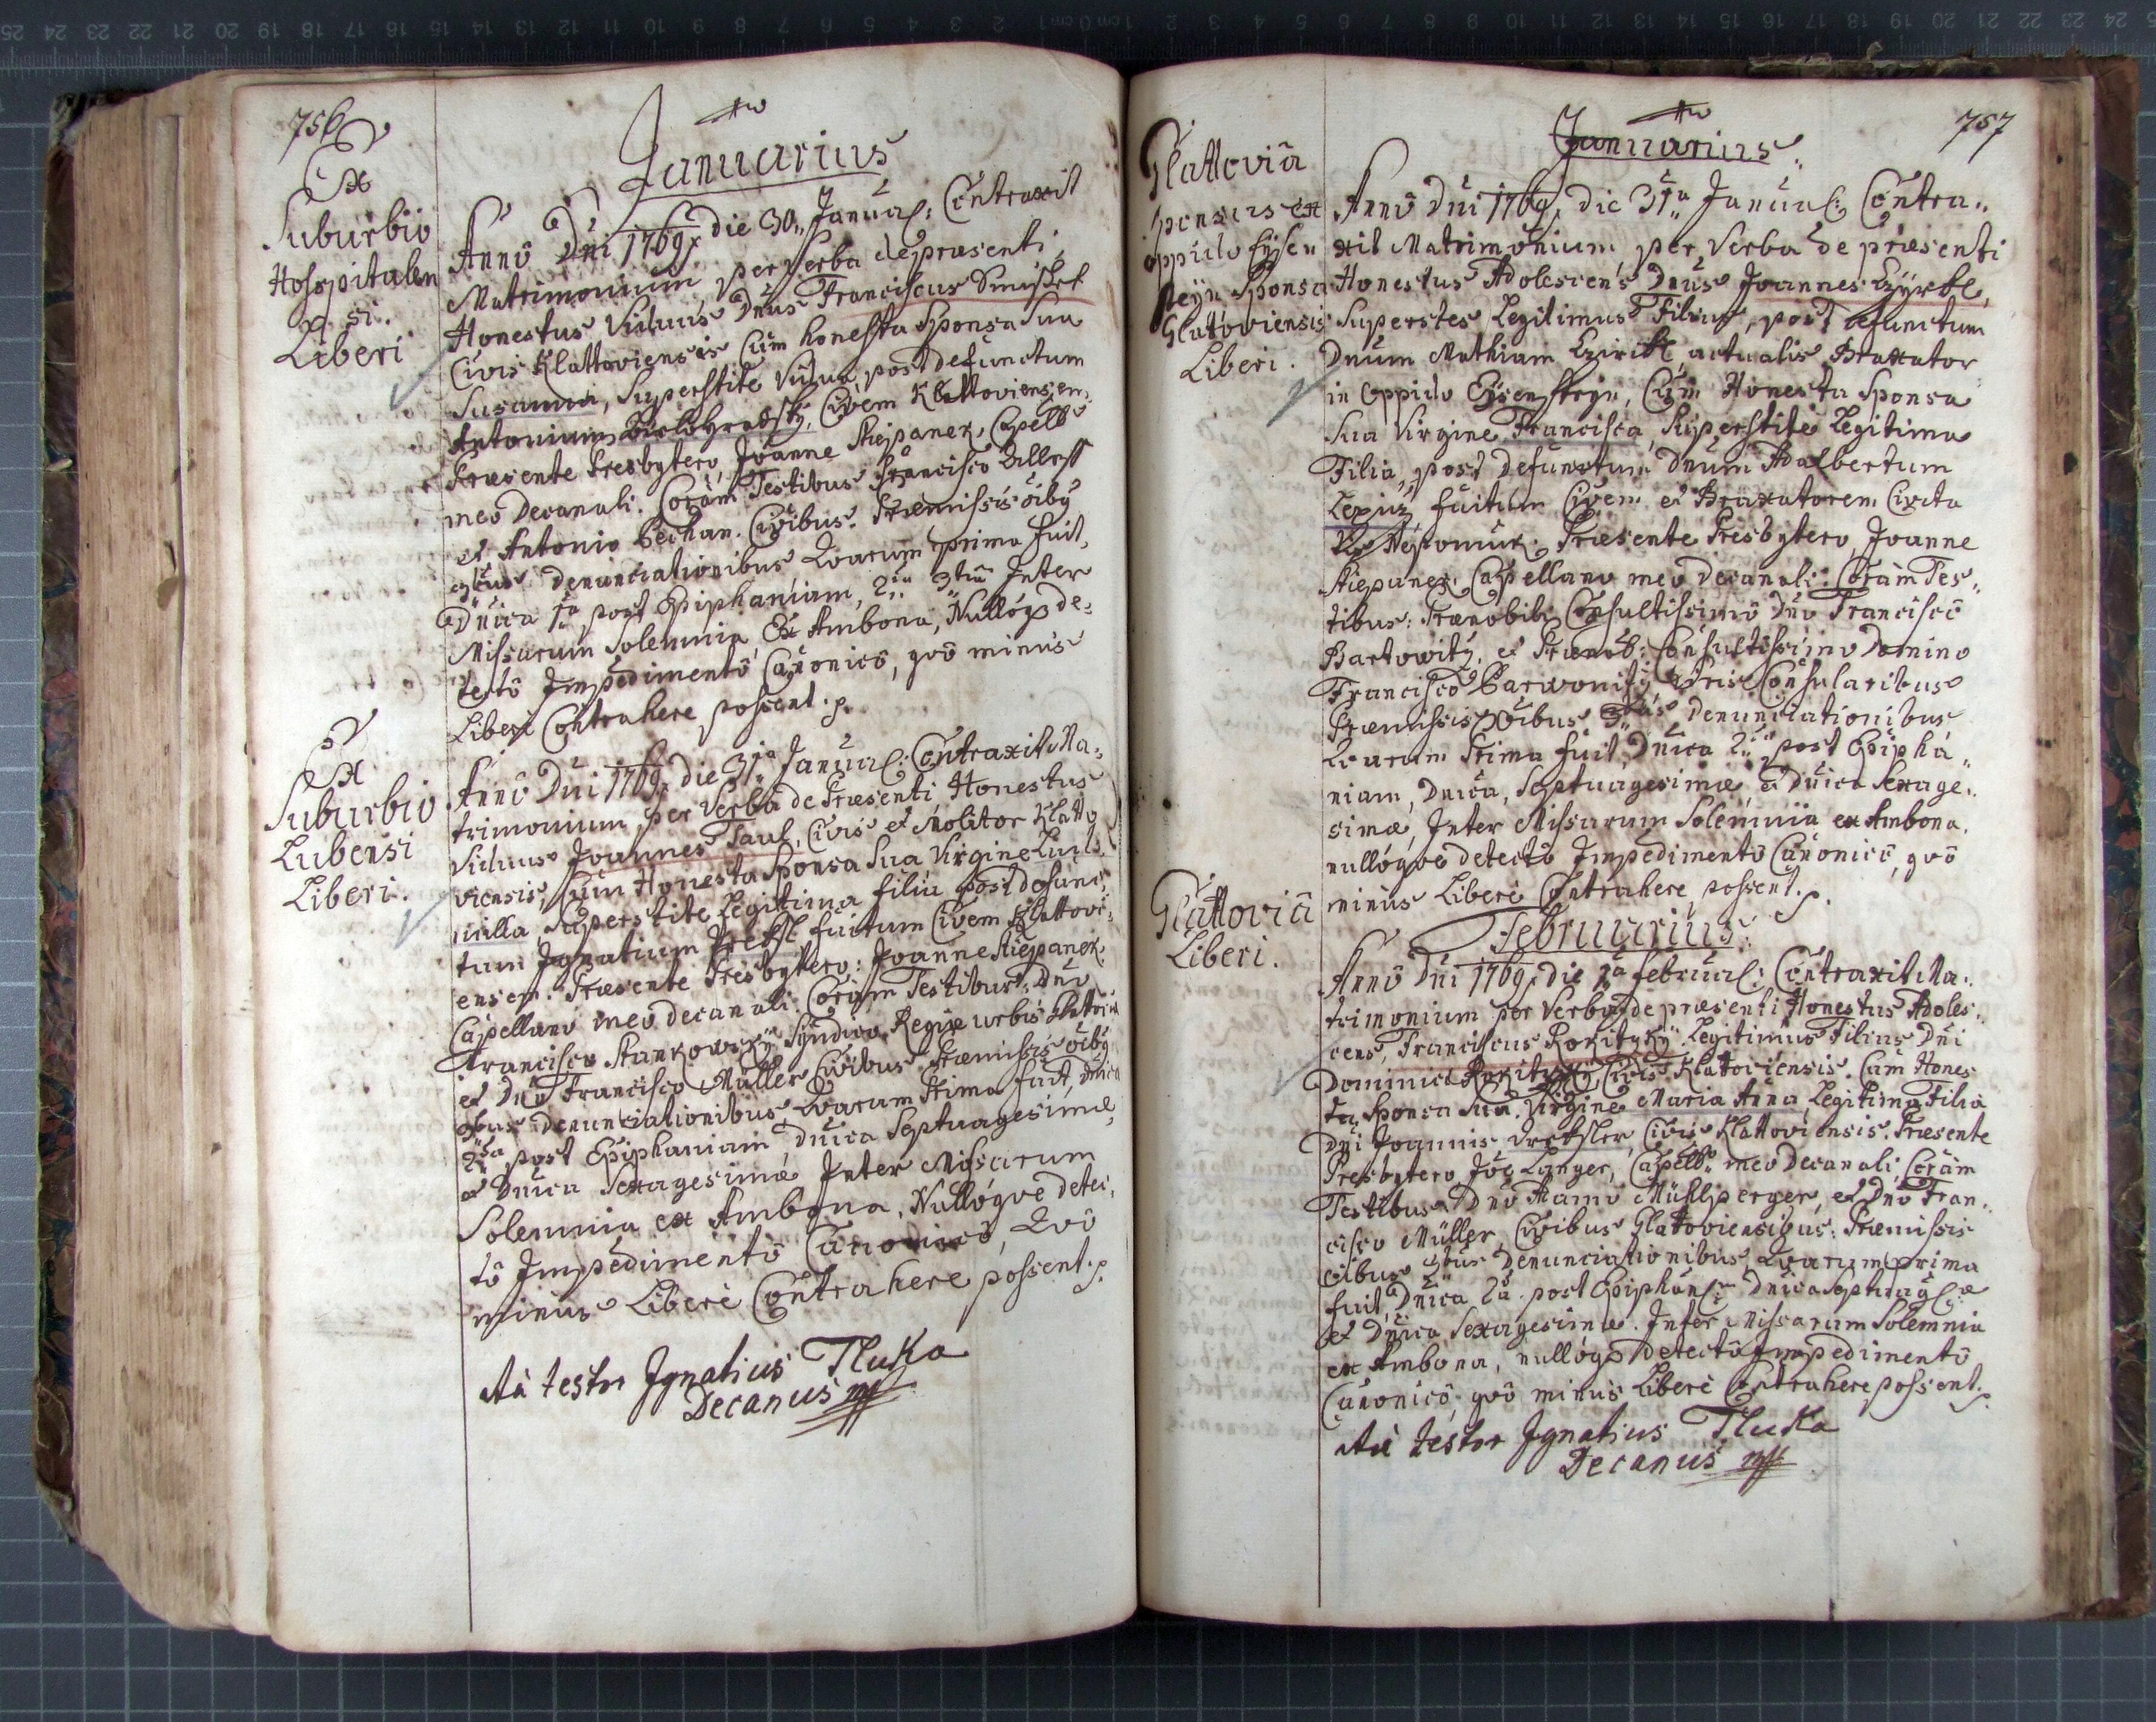 756
Januarius
Ex
Suburbio
Hospitalen
si.
Liberi
Anno Dni 1769. die 30. Januar: Contraxit
Matrimonium, per Verba depræsenti,
Honestus Viduus Dnus Franciscus
Civis Klattoviensis Cum honesta Sponsa Sua
Susanna, Superstite Vidua, post defunctum
Antonium Civem Klattoviensem,
Præsente Presbytero, Joanne Stiepanek, Capell
meo Decanali. Coram Testibus Francisco
et Antonio Pechan. Civibus. Præmissis
Denunciationibus Qvarum prima fuit,
Dnica 1a post Epiphaniam, 2a 3tia Inter
Missarum Solemnia, Ex Ambona, Nulloq de=
tecto Impedimento Canonico, qvo minus
Liberi Contrahere possent.
Ex
Suburbio
Lubensi
Liberi.
Anno Dni 1769. die 31a Januar: Contraxit Ma=
trimonium, per Verba de Præsenti Honestus
Viduus Joannes Paul, Civis et Molitor Klatto
viensis, Cum Honesta Sponsa Sua Virgine Lud
milla, Superstite Legitima filia post defunc,
tum Ignatium fuitum Civem Klattovi=
ensem. Præsente Presbytero: Joanne Stiepanek
Capellano meo decanali. Coram Testibus: Dno
Francisco Stankowsky Syndico Regiæ urbis
et Dno Francisco Müller Civibus Præmissis
Denunciationibus Qvarum Prima fuit, Dnica
2da post Epiphaniam Dnica Septuagesimæ,
et Dnica Sexagesimæ Inter Missarum
Solemnia ex Ambona, Nulloqve detec,
to Impedimento Canonico, Qvo
minus Liberè Contrahere possent.
Ità testor Ignatius Tluka
Decanus
757
Januarius
Glattovia
Sponsus ex
oppido Eysen
steyn Sponsa
Glatoviensis
Liberi.
Anno Dni 1769. die 31a Januar: Contra=
xit Matrimonium, per Verba de præsenti
Honestus Adolescens Dnus Joannes
Superstes Legitimus Filius, post defunctum
Dnum Mathiam actualis Braxator
in Oppido Eysensteyn, Cum Honesta Sponsa
Sua Virgine Francisca, Superstite Legitima
Filia, post defunctum Dnum Adalbertum
fuitum Civem et Braxatorem Civita
Nepomuk. Præsente Presbytero, Joanne
Stiepanek Capellano meo decanali. Coram Tes=
tibus: Prænobili Consultissimo Dno Francisco
Bartowity, et Prænob: Consultissimo Domino
Francisco Consularibus
Præmissis Denunciationibus
Qvarum Prima fuit, Dnica 2a post Epipha=
niam, Dnica, Septuagesimæ, et Dnica Sexage=
simæ, Inter Missarum Solemnia ex Ambona,
nulloqve detecto Impedimento Canonico, qvo
minus Liberè Contrahere possent.
Februarius
Glattovia
Liberi.
Anno Dni 1769. die 1a Februar: Contraxit Ma=
trimonium per Verba de præsenti Honestus Adoles=
cens, Franciscus Rokitzky Legitimus Filius Dni
Dominici Civis Klatoviensis. Cum Hones
ta Sponsa Sua Virgine Maria Anna, Legitima Filia
Dni Joannis Civis Klattoviensis. Præsente
Presbytero Langer, Capell: meo Decanali, Coram
Testibus Dno Adamo Mühlperger, et Dno Fran=
cisco Müller, Civibus Glatoviensibus: Præmissis
Denunciationibus, Qvarum prima
fuit Dnica 2a post Epiphan: Dnica Septuag:
et Dnica Sexagesimæ. Inter Missarum Solemnia
ex Ambona, nulloq Detecto Impedimento
Canonico, qvo minus Liberè Contrahere possent.
Ità testor Ignatius Tluka
Decanus